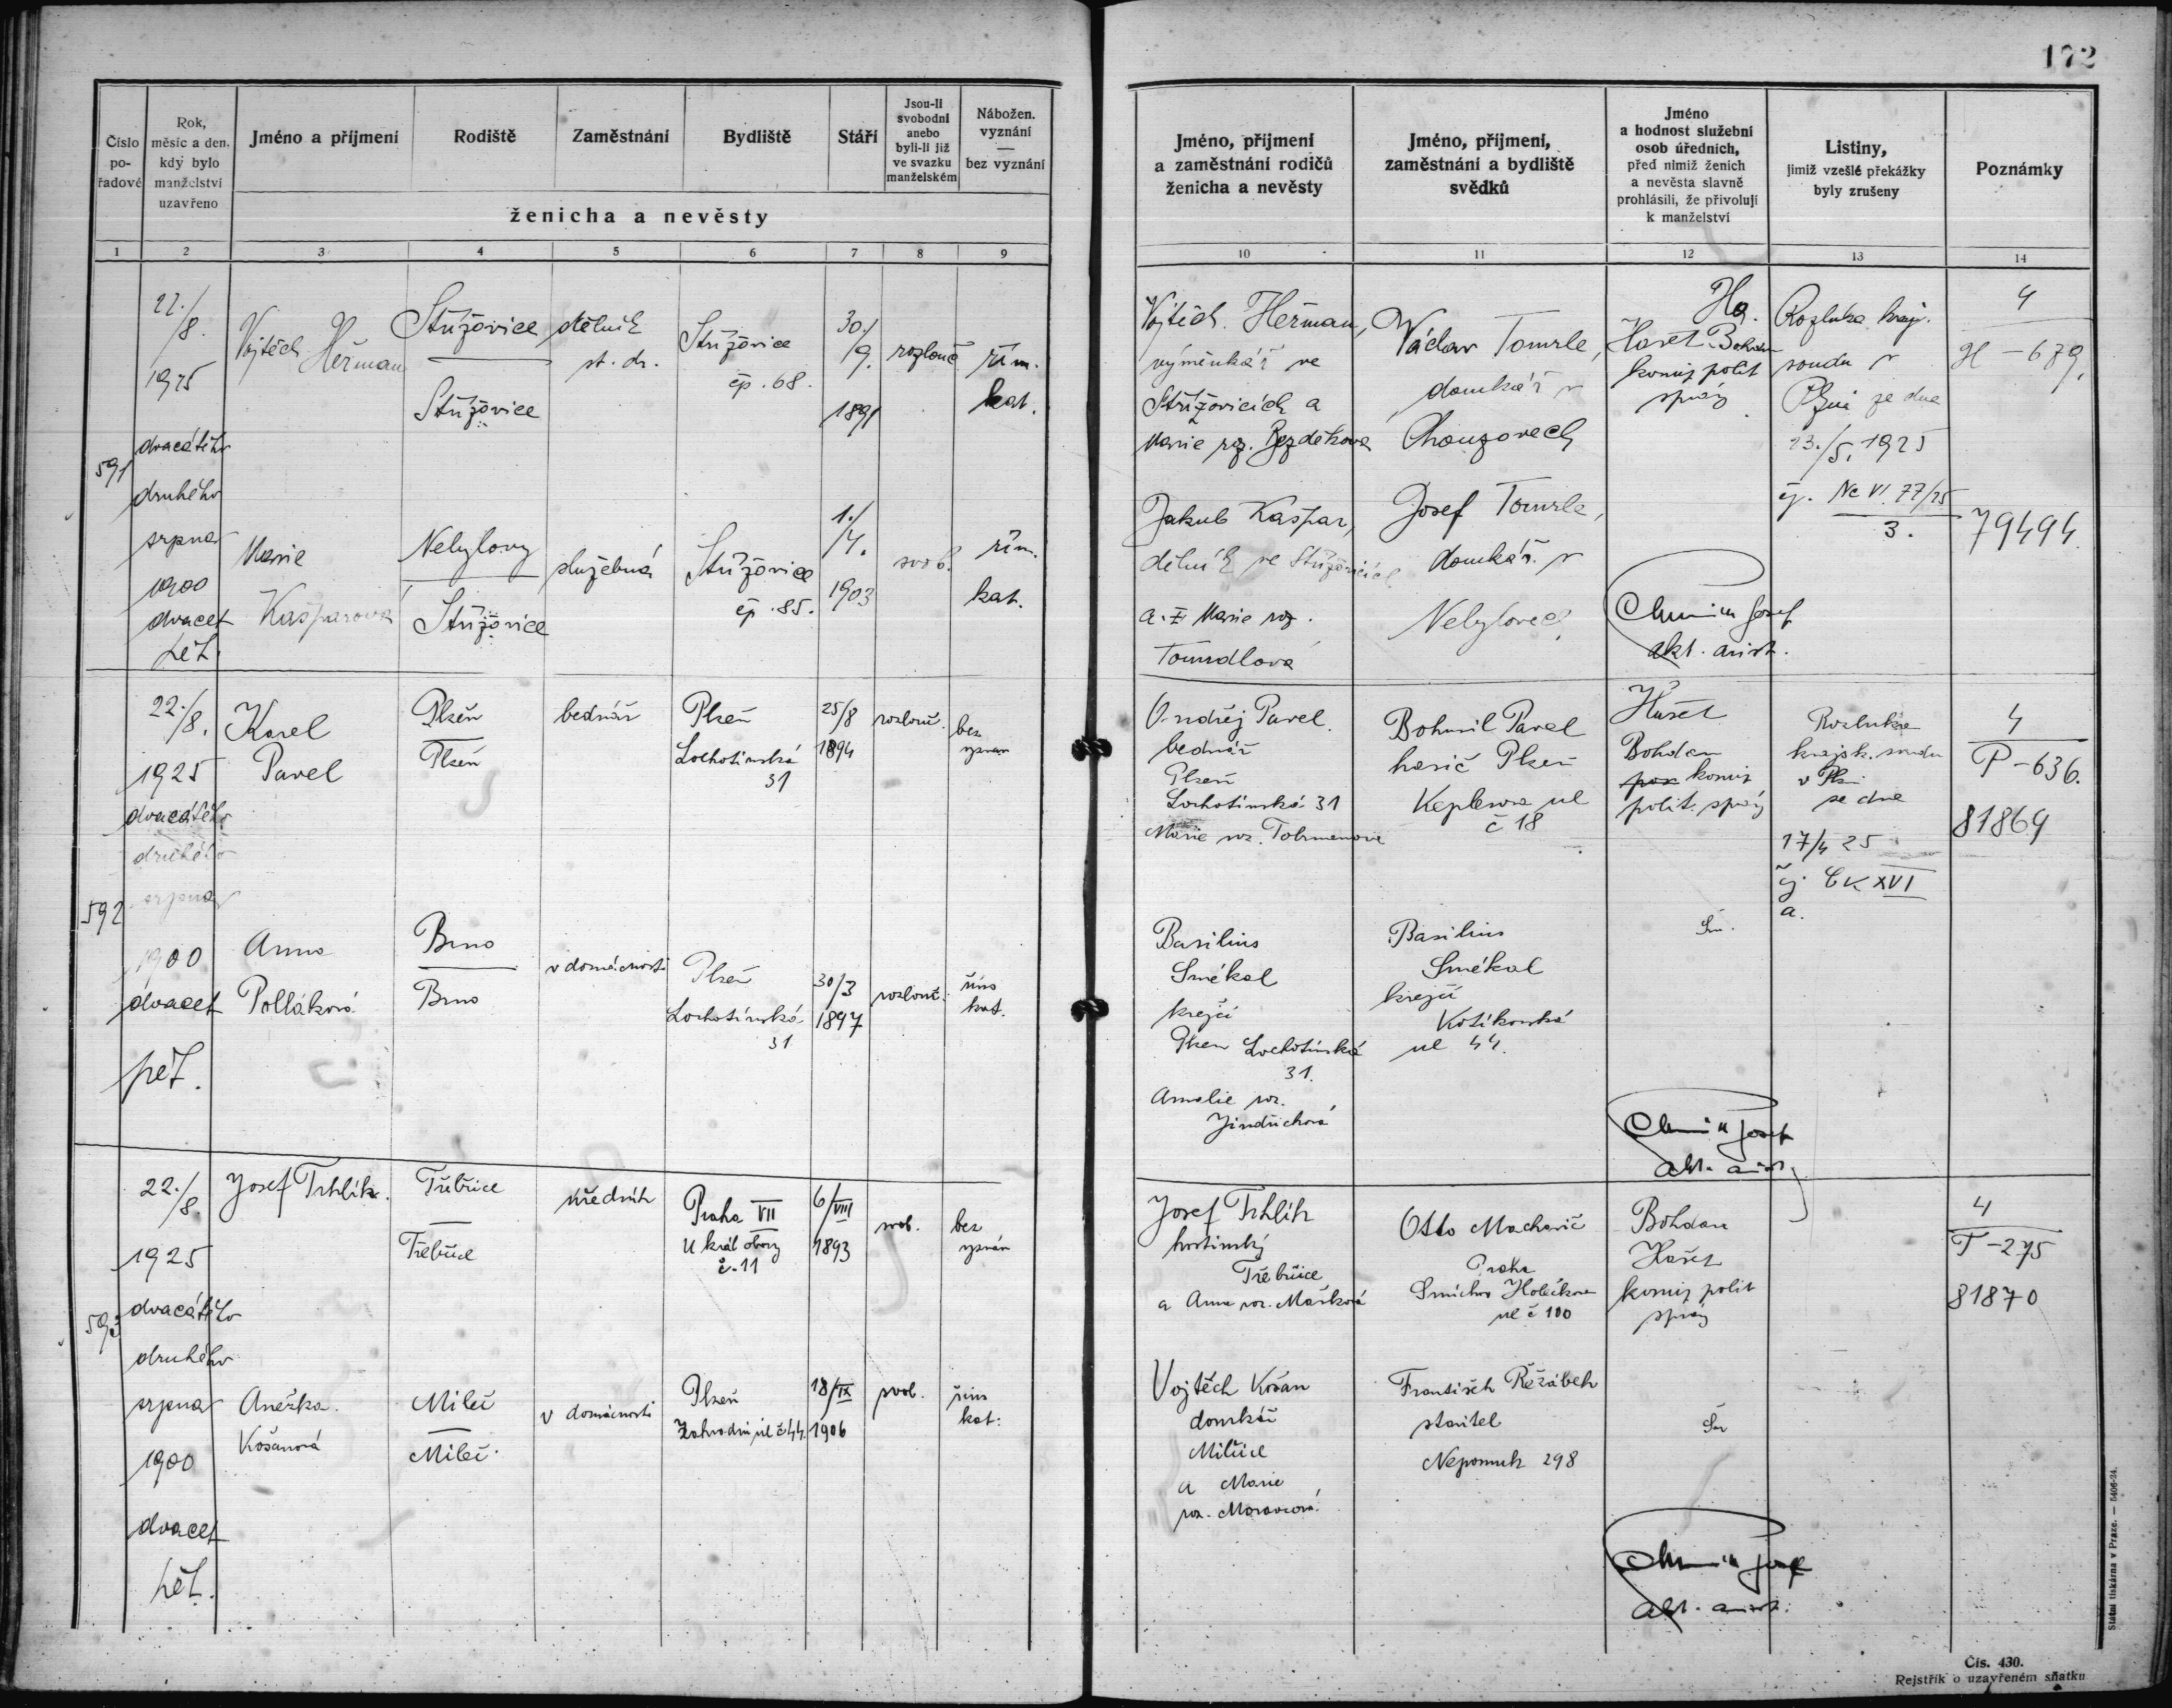 172
Číslo pořadové
Rok, měsíc a den, kdy bylo manželství uzavřeno
Jméno a příjmení
Rodiště
Zaměstnání
Bydliště
Stáří
Jsou-li svobodni anebo byli-li již ve svazku manželském
Nábožen. vyznání — bez vyznání
ženicha a nevěsty
Jméno, příjmení a zaměstnání rodičů ženicha a nevěsty
Jméno, příjmení, zaměstnání a bydliště svědků
Jméno a hodnost služební osob úředních, před nimiž ženich a nevěsta slavně prohlásili, že přivolují k manželství
Listiny, jimiž vzešlé překážky byly zrušeny
Poznámky
1 2 3 4 5 6 7 8 9 10 11 12 13 14
591
22./8.
1925
dvacátého
druhého
srpna
1900
dvacet
pět.
Vojtěch Heřman
Střížovice
Střížovice
dělník
st. dr.
Střížovice
čp. 68.
30./9.
1891
rozlouč
řím.
kat.
Marie
Kašparová
Nebylovy
Střížovice
služebná
Střížovice
čp. 85.
1./4.
1903
svob.
řím.
kat.
Vojtěch Heřman,
výměnkář ve
Střížovicích a
Marie roz. Bezděková
Jakub Kašpar,
dělník ve Střížovicích
a Marie roz.
Václav Tomrle,
domkář v
Chouzovech
Josef Tomrle,
domkář v
Nebylovech
Hašet Bohdan
komis polit
správy
Josef
Rozluka kraj.
soudu v
Plzni ze dne
13./5. 1925
čj. Nc VI 77/25
3.
4
H – 679.
79494
592
22./8.
1925
dvacátého
druhého
srpna
1900
dvacet
pět.
Karel
Pavel
Plzeň
Plzeň
bednář
Plzeň
Lochotínská
31
25/8
1894
rozlouč.
bez
vyznán
Anna
Polláková
Brno
Brno
v domácnosti
Plzeň
Lochotínská
31
30/3
1897
rozlouč.
řím
kat.
Ondřej Pavel
bednář
Plzeň
Lochotínská 31
Basilius
Smékal
krejčí
Plzeň Lochotínská
31.
Amalie roz.
Jindřichová
Bohumil Pavel
hasič Plzeň
Keplerova ul
č 18
Basilius
Smékal
krejčí
Kotíkovská
ul 44.
Hašet
Bohdan
komis
polit. správy
Josef
Rozluka
krajsk. soudu
v Plzni
ze dne
17/4 25
čj. Ck XVI
a.
4
P – 636.
81869
593
22./8.
1925
dvacátého
druhého
srpna
1900
dvacet
pět.
Josef Trhlík.
Třebřice
Třebřice
úředník
Praha VII
U král obory
č. 11
6/VIII
1893
svob.
bez
vyznán
Anežka
Košanová
Mileč
Mileč
v domácnosti
Plzeň
Zahradní ul č 44.
18/IX
1906
svob.
řím
kat.
Josef Trhlík
hostinský
Třebřice
a Anna roz. Mašková
Vojtěch Košan
domkář
a Marie
roz. Moravcová
Otto Machovič
Praha
Smíchov Holečkova
ul č 100
František Řežábek
stavitel
Nepomuk 298
Bohdan
Hašet
komis polit
správy
4
T – 275
81870
Státní tiskárna v Praze. — 5406-24.
Čís. 430.
Rejstřík o uzavřeném sňatku